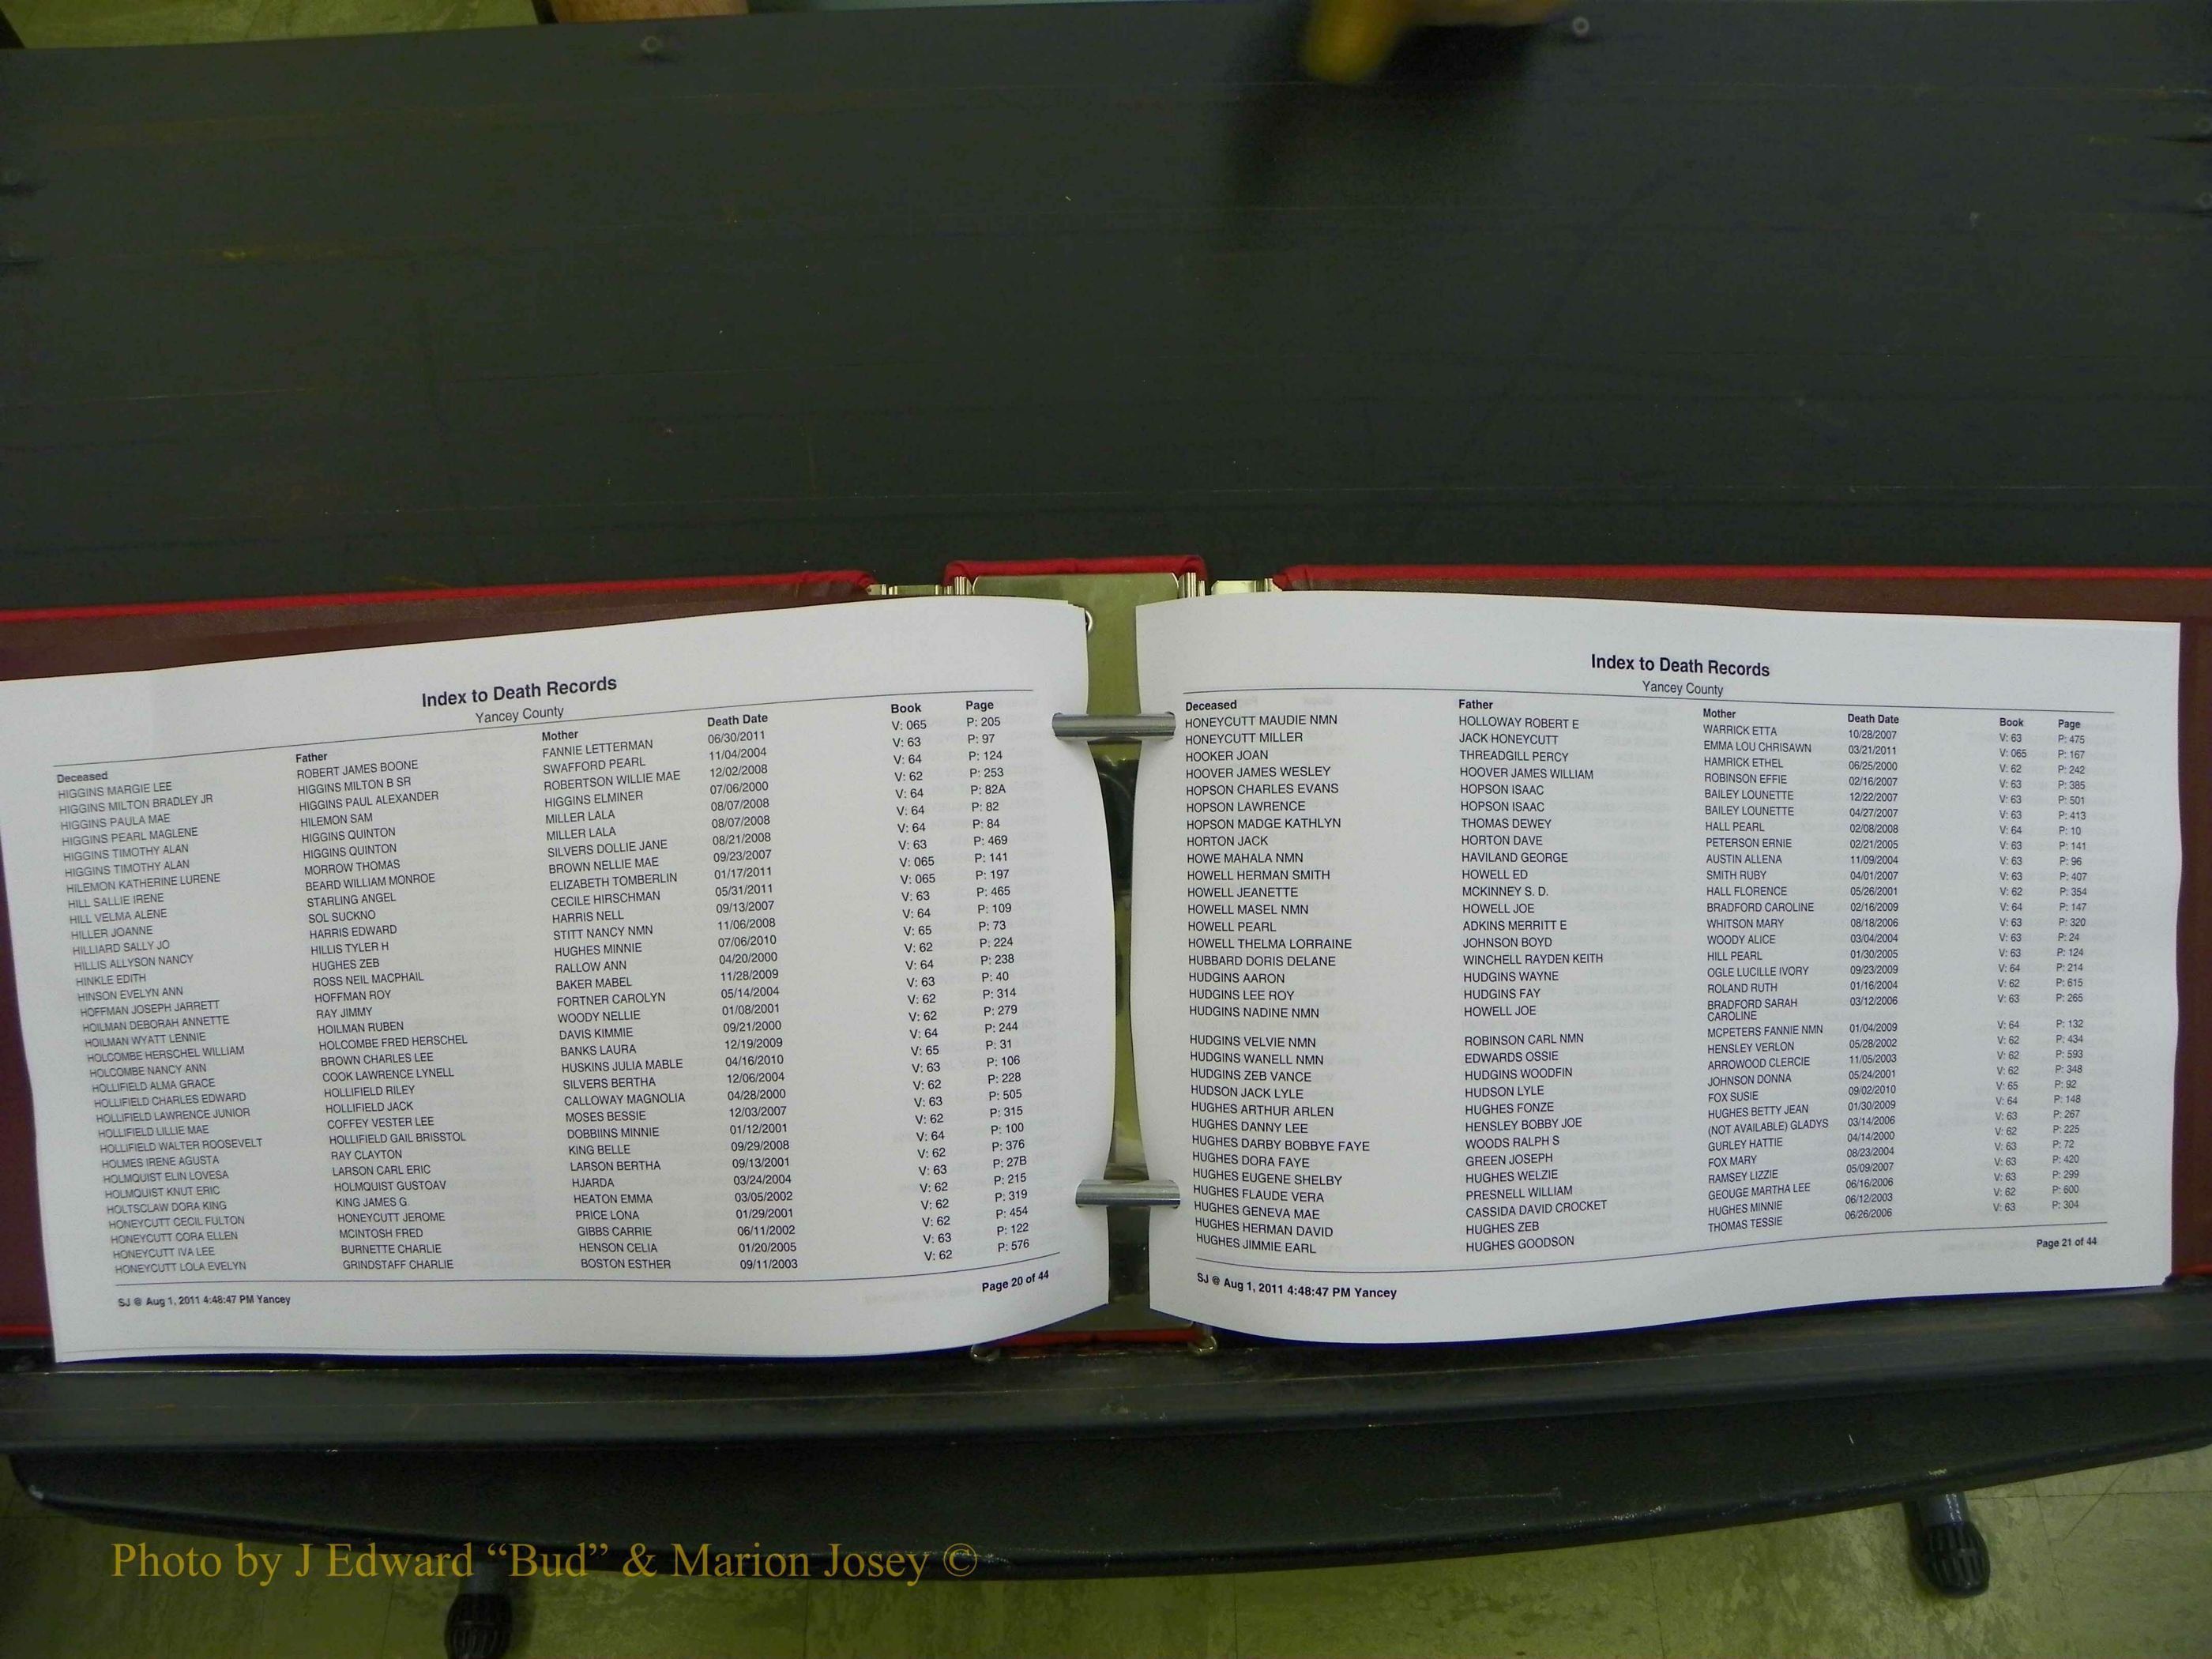 Index to Death Records
Yancey County
Deceased Father Mother Death Date Book Page
HIGGINS MARGIE LEE ROBERT JAMES BOONE FANNIE LETTERMAN 06/30/2011 V: 065 P: 205
HIGGINS MILTON BRADLEY JR HIGGINS MILTON B SR SWAFFORD PEARL 11/04/2004 V: 63 P: 97
HIGGINS PAULA MAE HIGGINS PAUL ALEXANDER ROBERTSON WILLIE MAE 12/02/2008 V: 64 P: 124
HIGGINS PEARL MAGLENE HILEMON SAM HIGGINS ELMINER 07/06/2000 V: 62 P: 253
HIGGINS TIMOTHY ALAN HIGGINS QUINTON MILLER LALA 08/07/2008 V: 64 P: 82A
HIGGINS TIMOTHY ALAN HIGGINS QUINTON MILLER LALA 08/07/2008 V: 64 P: 82
HILEMON KATHERINE LURENE MORROW THOMAS SILVERS DOLLIE JANE 08/21/2008 V: 64 P: 84
HILL SALLIE IRENE BEARD WILLIAM MONROE BROWN NELLIE MAE 09/23/2007 V: 63 P: 469
HILL VELMA ALENE STARLING ANGEL ELIZABETH TOMBERLIN 01/17/2011 V: 065 P: 141
HILLER JOANNE SOL SUCKNO CECILE HIRSCHMAN 05/31/2011 V: 065 P: 197
HILLIARD SALLY JO HARRIS EDWARD HARRIS NELL 09/13/2007 V: 63 P: 465
HILLIS ALLYSON NANCY HILLIS TYLER H STITT NANCY NMN 11/06/2008 V: 64 P: 109
HINKLE EDITH HUGHES ZEB HUGHES MINNIE 07/06/2010 V: 65 P: 73
HINSON EVELYN ANN ROSS NEIL MACPHAIL RALLOW ANN 04/20/2000 V: 62 P: 224
HOFFMAN JOSEPH JARRETT HOFFMAN ROY BAKER MABEL 11/28/2009 V: 64 P: 238
HOILMAN DEBORAH ANNETTE RAY JIMMY FORTNER CAROLYN 05/14/2004 V: 63 P: 40
HOILMAN WYATT LENNIE HOILMAN RUBEN WOODY NELLIE 01/08/2001 V: 62 P: 314
HOLCOMBE HERSCHEL WILLIAM HOLCOMBE FRED HERSCHEL DAVIS KIMMIE 09/21/2000 V: 62 P: 279
HOLCOMBE NANCY ANN BROWN CHARLES LEE BANKS LAURA 12/19/2009 V: 64 P: 244
HOLLIFIELD ALMA GRACE COOK LAWRENCE LYNELL HUSKINS JULIA MABLE 04/16/2010 V: 65 P: 31
HOLLIFIELD CHARLES EDWARD HOLLIFIELD RILEY SILVERS BERTHA 12/06/2004 V: 63 P: 106
HOLLIFIELD LAWRENCE JUNIOR HOLLIFIELD JACK CALLOWAY MAGNOLIA 04/28/2000 V: 62 P: 228
HOLLIFIELD LILLIE MAE COFFEY VESTER LEE MOSES BESSIE 12/03/2007 V: 63 P: 505
HOLLIFIELD WALTER ROOSEVELT HOLLIFIELD GAIL BRISSTOL DOBBIINS MINNIE 01/12/2001 V: 62 P: 315
HOLMES IRENE AGUSTA RAY CLAYTON KING BELLE 09/29/2008 V: 64 P: 100
HOLMQUIST ELIN LOVESA LARSON CARL ERIC LARSON BERTHA 09/13/2001 V: 62 P: 376
HOLMQUIST KNUT ERIC HOLMQUIST GUSTOAV HJARDA 03/24/2004 V: 63 P: 27B
HOLTSCLAW DORA KING KING JAMES G. HEATON EMMA 03/05/2002 V: 62 P: 215
HONEYCUTT CECIL FULTON HONEYCUTT JEROME PRICE LONA 01/29/2001 V: 62 P: 319
HONEYCUTT CORA ELLEN MCINTOSH FRED GIBBS CARRIE 06/11/2002 V: 62 P: 454
HONEYCUTT IVA LEE BURNETTE CHARLIE HENSON CELIA 01/20/2005 V: 63 P: 122
HONEYCUTT LOLA EVELYN GRINDSTAFF CHARLIE BOSTON ESTHER 09/11/2003 V: 62 P: 576
SJ @ Aug 1, 2011 4:48:47 PM Yancey Page 20 of 44
Index to Death Records
Yancey County
Deceased Father Mother Death Date Book Page
HONEYCUTT MAUDIE NMN HOLLOWAY ROBERT E WARRICK ETTA 10/28/2007 V: 63 P: 475
HONEYCUTT MILLER JACK HONEYCUTT EMMA LOU CHRISAWN 03/21/2011 V: 065 P: 167
HOOKER JOAN THREADGILL PERCY HAMRICK ETHEL 06/25/2000 V: 62 P: 242
HOOVER JAMES WESLEY HOOVER JAMES WILLIAM ROBINSON EFFIE 02/16/2007 V: 63 P: 385
HOPSON CHARLES EVANS HOPSON ISAAC BAILEY LOUNETTE 12/22/2007 V: 63 P: 501
HOPSON LAWRENCE HOPSON ISAAC BAILEY LOUNETTE 04/27/2007 V: 63 P: 413
HOPSON MADGE KATHLYN THOMAS DEWEY HALL PEARL 02/08/2008 V: 64 P: 10
HORTON JACK HORTON DAVE PETERSON ERNIE 02/21/2005 V: 63 P: 141
HOWE MAHALA NMN HAVILAND GEORGE AUSTIN ALLENA 11/09/2004 V: 63 P: 96
HOWELL HERMAN SMITH HOWELL ED SMITH RUBY 04/01/2007 V: 63 P: 407
HOWELL JEANETTE MCKINNEY S. D. HALL FLORENCE 05/26/2001 V: 62 P: 354
HOWELL MASEL NMN HOWELL JOE BRADFORD CAROLINE 02/16/2009 V: 64 P: 147
HOWELL PEARL ADKINS MERRITT E WHITSON MARY 08/18/2006 V: 63 P: 320
HOWELL THELMA LORRAINE JOHNSON BOYD WOODY ALICE 03/04/2004 V: 63 P: 24
HUBBARD DORIS DELANE WINCHELL RAYDEN KEITH HILL PEARL 01/30/2005 V: 63 P: 124
HUDGINS AARON HUDGINS WAYNE OGLE LUCILLE IVORY 09/23/2009 V: 64 P: 214
HUDGINS LEE ROY HUDGINS FAY ROLAND RUTH 01/16/2004 V: 62 P: 615
HUDGINS NADINE NMN HOWELL JOE BRADFORD SARAH 03/12/2006 V: 63 P: 265
CAROLINE
HUDGINS VELVIE NMN ROBINSON CARL NMN MCPETERS FANNIE NMN 01/04/2009 V: 64 P: 132
HUDGINS WANELL NMN EDWARDS OSSIE HENSLEY VERLON 05/28/2002 V: 62 P: 434
HUDGINS ZEB VANCE HUDGINS WOODFIN ARROWOOD CLERCIE 11/05/2003 V: 62 P: 593
HUDSON JACK LYLE HUDSON LYLE JOHNSON DONNA 05/24/2001 V: 62 P: 348
HUGHES ARTHUR ARLEN HUGHES FONZE FOX SUSIE 09/02/2010 V: 65 P: 92
HUGHES DANNY LEE HENSLEY BOBBY JOE HUGHES BETTY JEAN 01/30/2009 V: 64 P: 148
HUGHES DARBY BOBBYE FAYE WOODS RALPH S (NOT AVAILABLE) GLADYS 03/14/2006 V: 63 P: 267
HUGHES DORA FAYE GREEN JOSEPH GURLEY HATTIE 04/14/2000 V: 62 P: 225
HUGHES EUGENE SHELBY HUGHES WELZIE FOX MARY 08/23/2004 V: 63 P: 72
HUGHES FLAUDE VERA PRESNELL WILLIAM RAMSEY LIZZIE 05/09/2007 V: 63 P: 420
HUGHES GENEVA MAE CASSIDA DAVID CROCKET GEOUGE MARTHA LEE 06/16/2006 V: 63 P: 299
HUGHES HERMAN DAVID HUGHES ZEB HUGHES MINNIE 06/12/2003 V: 62 P: 600
HUGHES JIMMIE EARL HUGHES GOODSON THOMAS TESSIE 06/26/2006 V: 63 P: 304
SJ @ Aug 1, 2011 4:48:47 PM Yancey Page 21 of 44
Photo by J Edward “Bud” & Marion Josey ©